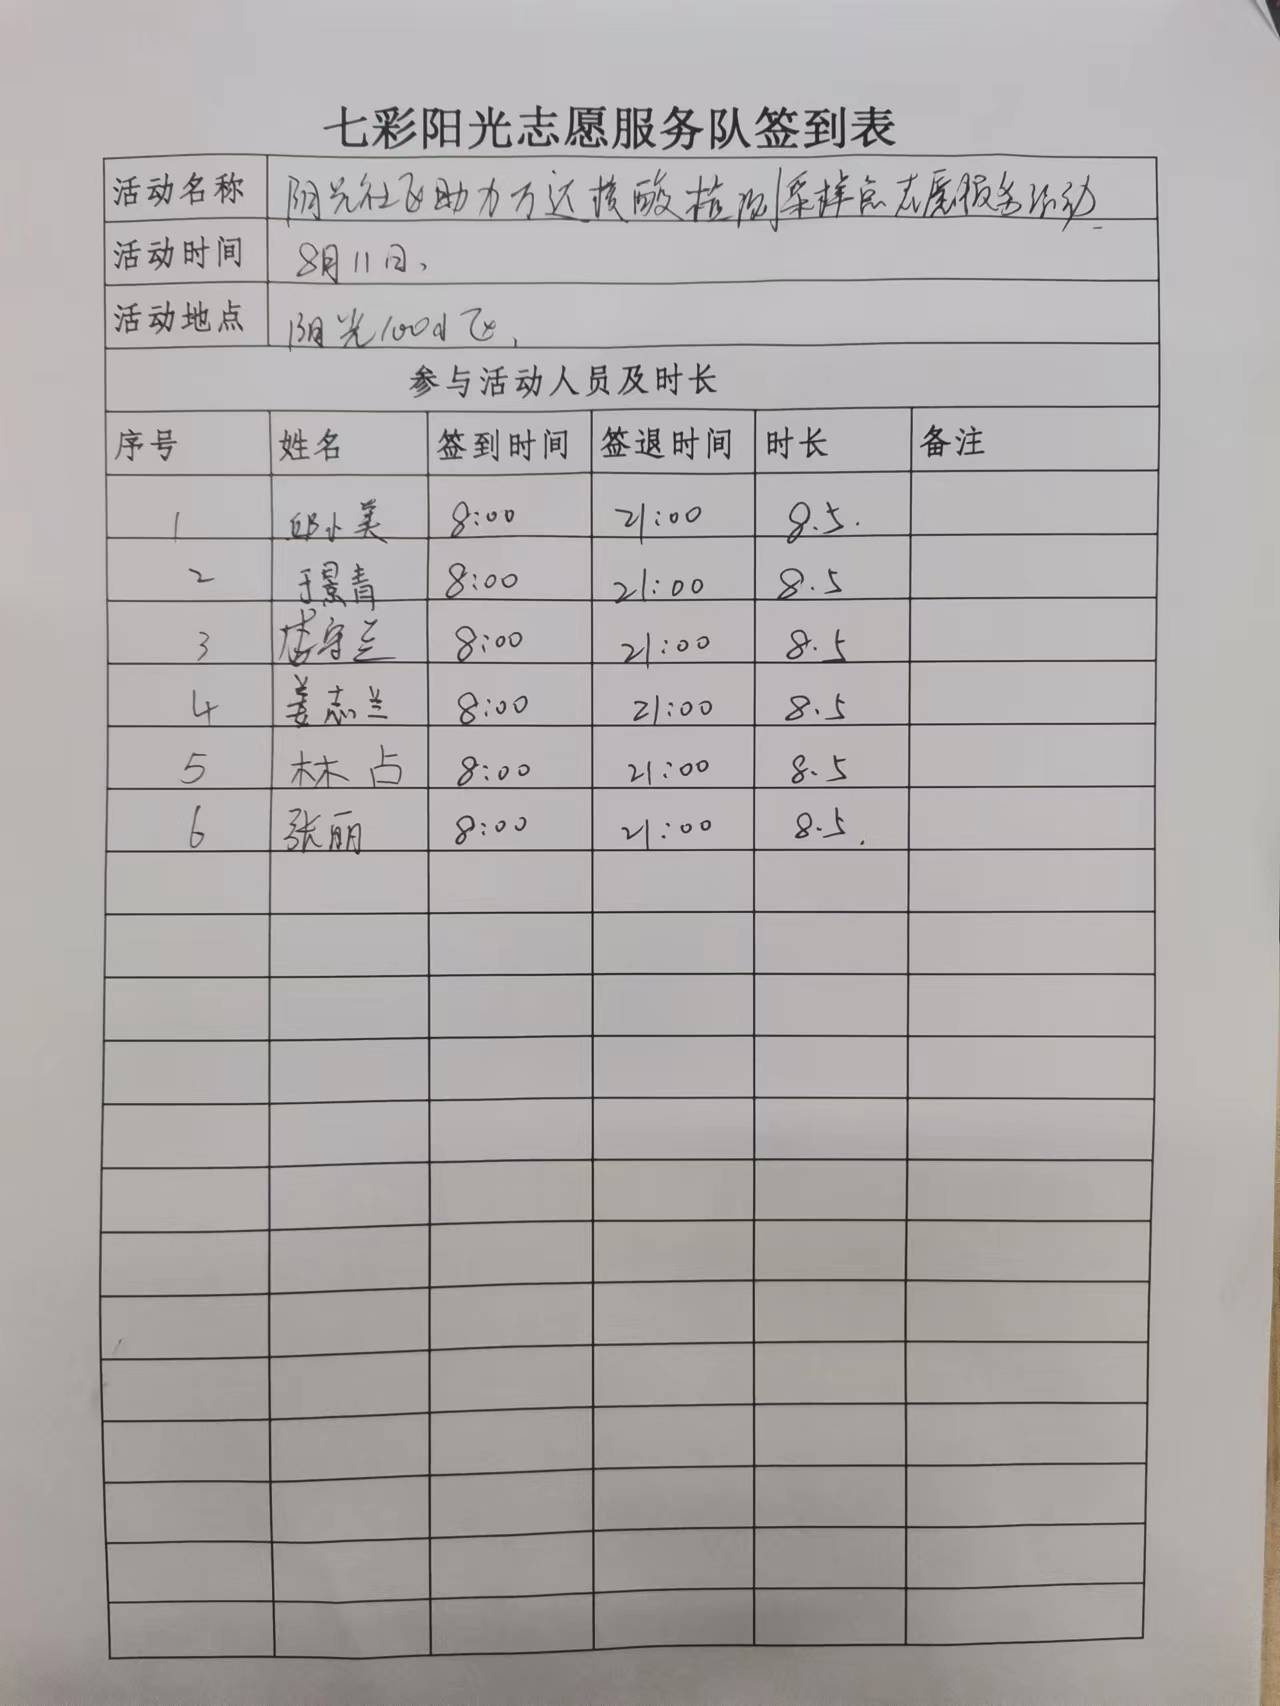 七彩阳光志愿服务队签到表
活动名称 阳光社区助力万达核酸检测采样点志愿服务活动.
活动时间 8月11日、
活动地点 阳光100小区,
参与活动人员及时长
序号 姓名 签到时间 签退时间 时长 备注
1 邱小美 8:00 21:00 8.5.
2 于景青 8:00 21:00 8.5
3 守兰 8:00 21:00 8.5
4 姜志兰 8:00 21:00 8.5
5 林占 8:00 21:00 8.5
6 张丽 8:00 21:00 8.5.